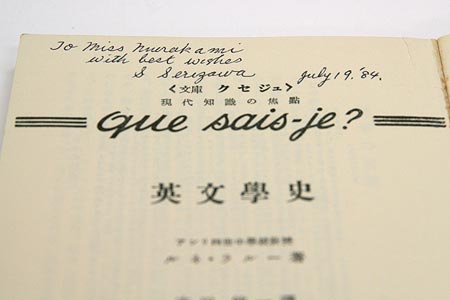 To Miss Murakami
with best wishes
S Serizawa July 19. '84.
〈文庫 クセジュ〉
現代知識の焦點
que sais-je?
英文學史
ルネ・ラルー著